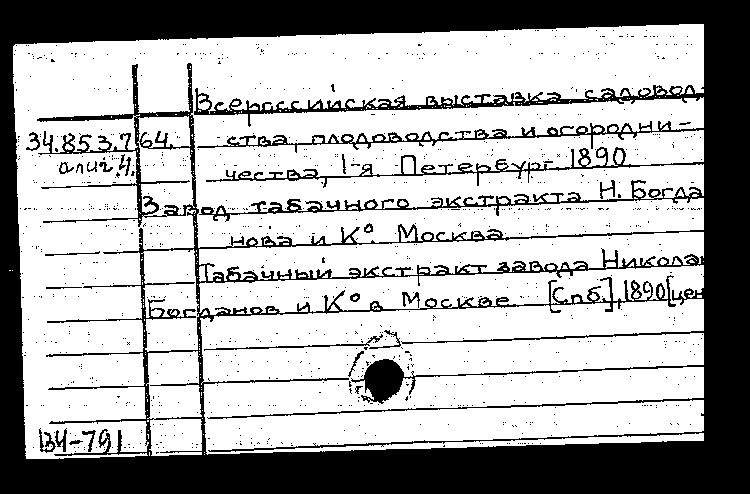 Всероссийская выставка садовод-
34.853.7 64. ства, плодоводства и огородни-
алиг.4. чества, 1-я. Петербург. 1890.
Завод табачного экстракта Н. Богда
нова и К°. Москва.
Табачный экстракт завода Никола
Богданов и К° в Москве. [Спб.], 1890 [цен
В4-791